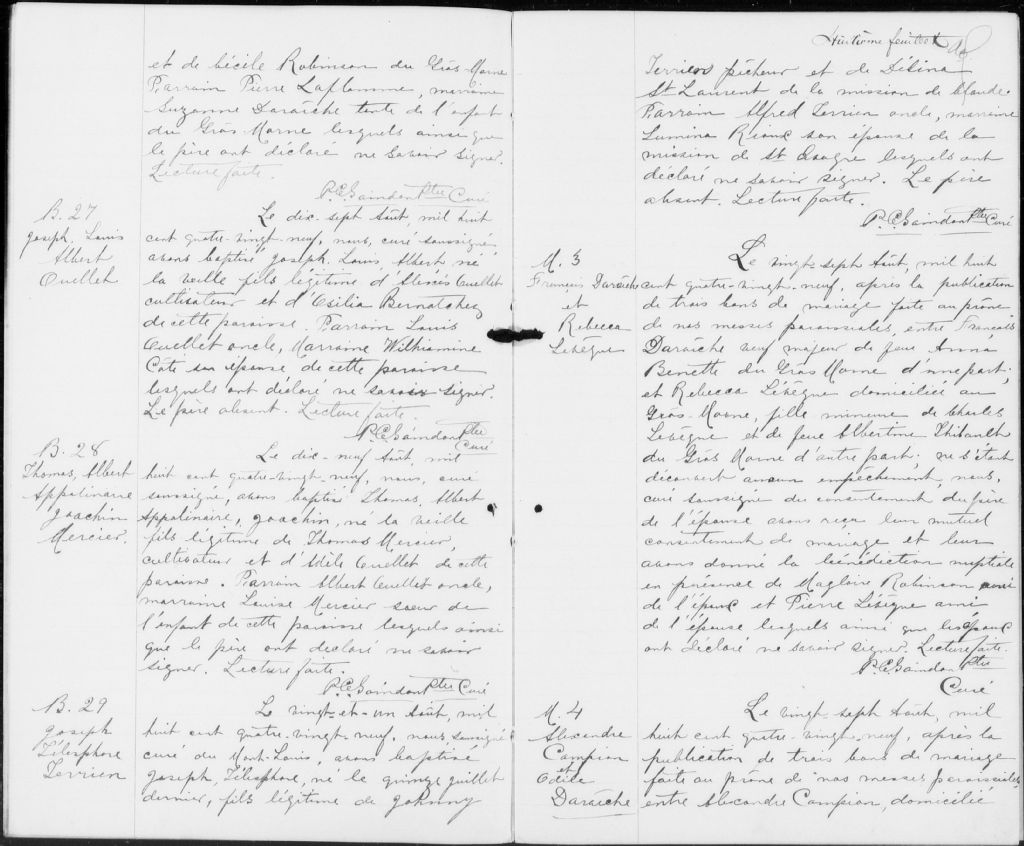 et de Cécile Robinson du Gros-Morne
Parrain Pierre Laflamme, marraine
Suzanne Daraîche tente de l'enfant
du Gros Morne lesquels ainsi que
le père ont déclaré ne savoir signer.
Lecture faite.
P.C. Saindon Ptre Curé
B. 27
Joseph, Louis
Albert
Ouellet
Le dix-sept Août, mil huit
cent quatre-vingt-neuf, nous, curé soussigné,
avons baptisé Joseph, Louis, Albert né
la veille fils légitime d'Alexis Ouellet
cultivateur et d'Exilia Bernatchez
de cette paroisse. Parrain Louis
Ouellet oncle, Marraine Wilhiamine
Côté son épouse de cette paroisse
lesquels ont déclaré ne savoir signer.
Le père absent. Lecture faite.
P.C. Saindon Ptre
Curé
B. 28
Thomas, Albert
Appolinaire
Joachin
Mercier.
Le dix-neuf Août, mil
huit cent quatre-vingt-neuf, nous, curé
soussigné, avons baptisé Thomas, Albert
Appolinaire, Joachin, né la veille
fils légitime de Thomas Mercier,
cultivateur et d'Adèle Ouellet de cette
paroisse. Parrain Albert Ouellet oncle,
marraine Louise Mercier soeur de
l'enfant de cette paroisse lesquels ainsi
que le père ont déclaré ne savoir
signer. Lecture faite.
P.C. Saindon Ptre Curé
B. 29
Joseph
Télesphore
Terrien
Le vingt-et-un Août, mil
huit cent quatre-vingt-neuf, nous soussigné
curé du Mont-Louis, avons baptisé
Joseph, Télesphore, né le quinze juillet
dernier, fils légitime de Johnny
Huitième feuillet
Terrien pêcheur et de Délina
St Laurent de la mission de Claude
Parrain Alfred Terrien oncle, marraine
Lumina Rioux son épouse de la
mission de St lesquels ont
déclaré ne savoir signer. Le père
absent. Lecture faite.
P.C. Saindon Ptre Curé
M. 3
François Daraîche
et
Rebecca
Lévêque
Le vingt-sept Août, mil huit
cent quatre-vingt-neuf, après la publication
de trois bans de mariage faite au prône
de nos messes paroissiales, entre François
Daraîche veuf majeur de feue Anna
Benette du Gros Morne d'une part;
et Rebecca Lévêque domiciliée au
Gros-Morne, fille mineure de Charles
Lévêque et de feue Albertine Thibault
du Gros Morne d'autre part; ne s'étant
découvert aucun empêchement, nous,
curé soussigné du consentement du père
de l'épouse avons reçu leur mutuel
consentement de mariage et leur
avons donné la bénédiction nuptiale
en présence de Magloire Robinson ami
de l'époux et Pierre Lévêque ami
de l'épouse lesquels ainsi que les époux
ont déclaré ne savoir signer. Lecture faite.
P.C. Saindon Ptre
Curé
M. 4
Alexandre
Campion
et
Odile
Daraîche
Le vingt-sept Août, mil
huit cent quatre-vingt-neuf, après la
publication de trois bans de mariage
faite au prône de nos messes paroissiales
entre Alexandre Campion, domicilié